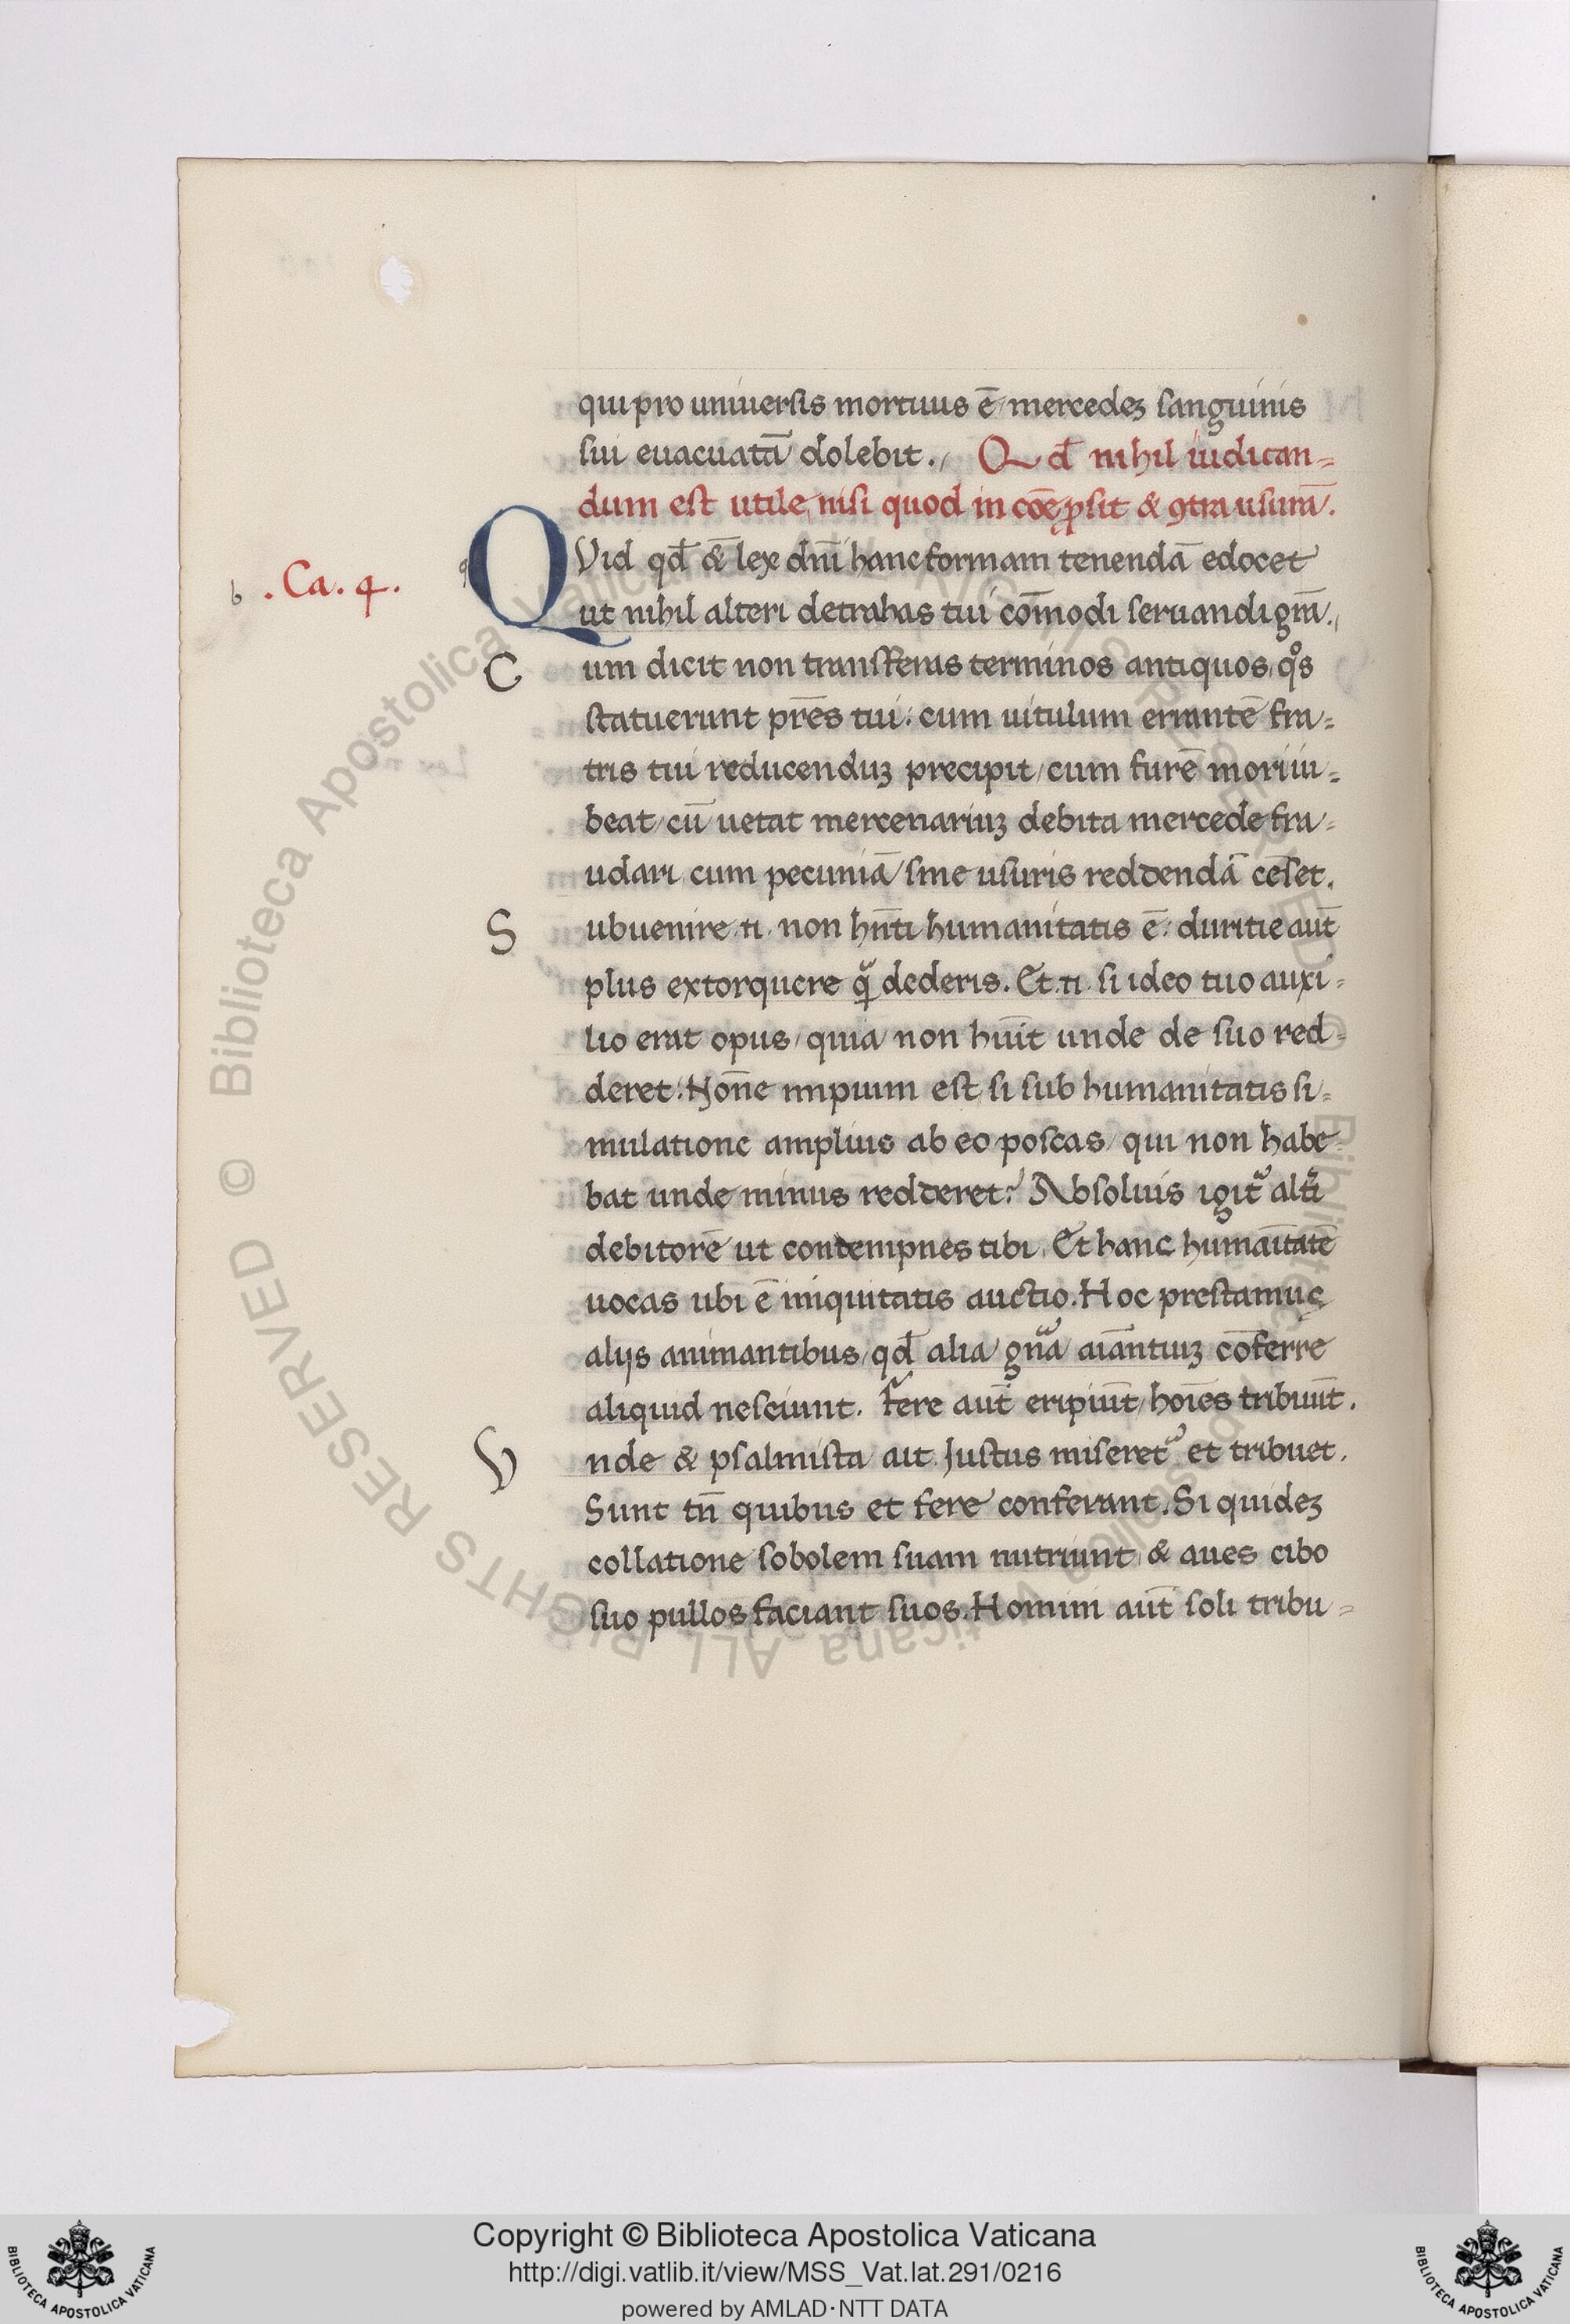 qui pro uniuersis mortuus ē mercedeꝫ sanguinis
sui euacuatā dolebit. Qd̄ nihil iudican=
dum est utile nisi quod in cōe ꝓsit & ꝯtra usurā.
QVid qd̄ & lex dnī hanc formam tenendā edocet
b .Ca. 4.
ut nihil alteri detrahas tui cōmodi seruandi grā.
Cum dicit non transferas terminos antiquos qͦs
statuerunt prēs tui: cum uitulum errantē fra=
tris tui reducenduꝫ precipit cum furē mori iu=
beat cū uetat mercenariuꝫ debita mercede fra=
udari cum pecuniā sine usuris reddendā cēset.
Subuenire .n. non hn̄ti humanitatis ē: duritie aut̄
plus extorquere qͣ̄ dederis. Et .n. si ideo tuo auxi=
lio erat opus quia non huit̄ unde de suo red=
deret: Nōne impium est si sub humanitatis si=
mulatione amplius ab eo poscas qui non habe=
bat unde minus redderet? Absoluis igit᷑ alt̄i
debitorē ut contempnes tibi. Et hanc humaītatē
uocas ubi ē iniquitatis auctio. Hoc prestamus
alijs animantibus qd̄ alia gnͣa aīantiuꝫ cōferre
aliquid nesciunt. Fere aut̄ eripiūt hoīes tribuūt.
Vnde & psalmista ait. Justus miseret᷑ et tribuet.
Sunt tn̄ quibus et fere conferant. Si quideꝫ
collatione sobolem suam nutriunt & aues cibo
suo pullos faciant suos. Homini aut̄ soli tribu=
© Biblioteca Apostolica Vaticana ALL RIGHTS RESERVED © Biblioteca Apostolica Vaticana ALL RIGHTS RESERVED
Copyright © Biblioteca Apostolica Vaticana
http://digi.vatlib.it/view/MSS_Vat.lat.291/0216
powered by AMLAD·NTT DATA
BIBLIOTECA APOSTOLICA VATICANA
BIBLIOTECA APOSTOLICA VATICANA